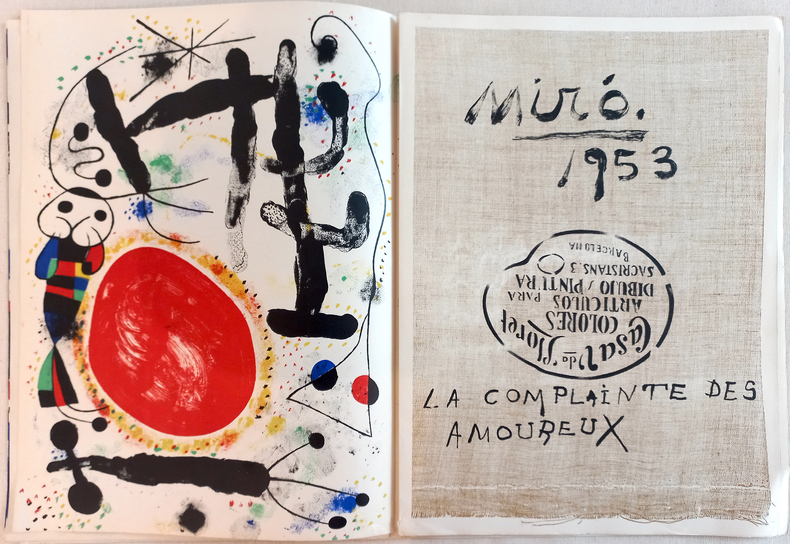 Miró.
1953
Casa Vda Lloret
COLORES
ARTICULOS PARA
DIBUJO y PINTURA
SACRISTANS, 3
BARCELONA
LA COMPLAINTE DES
AMOUREUX